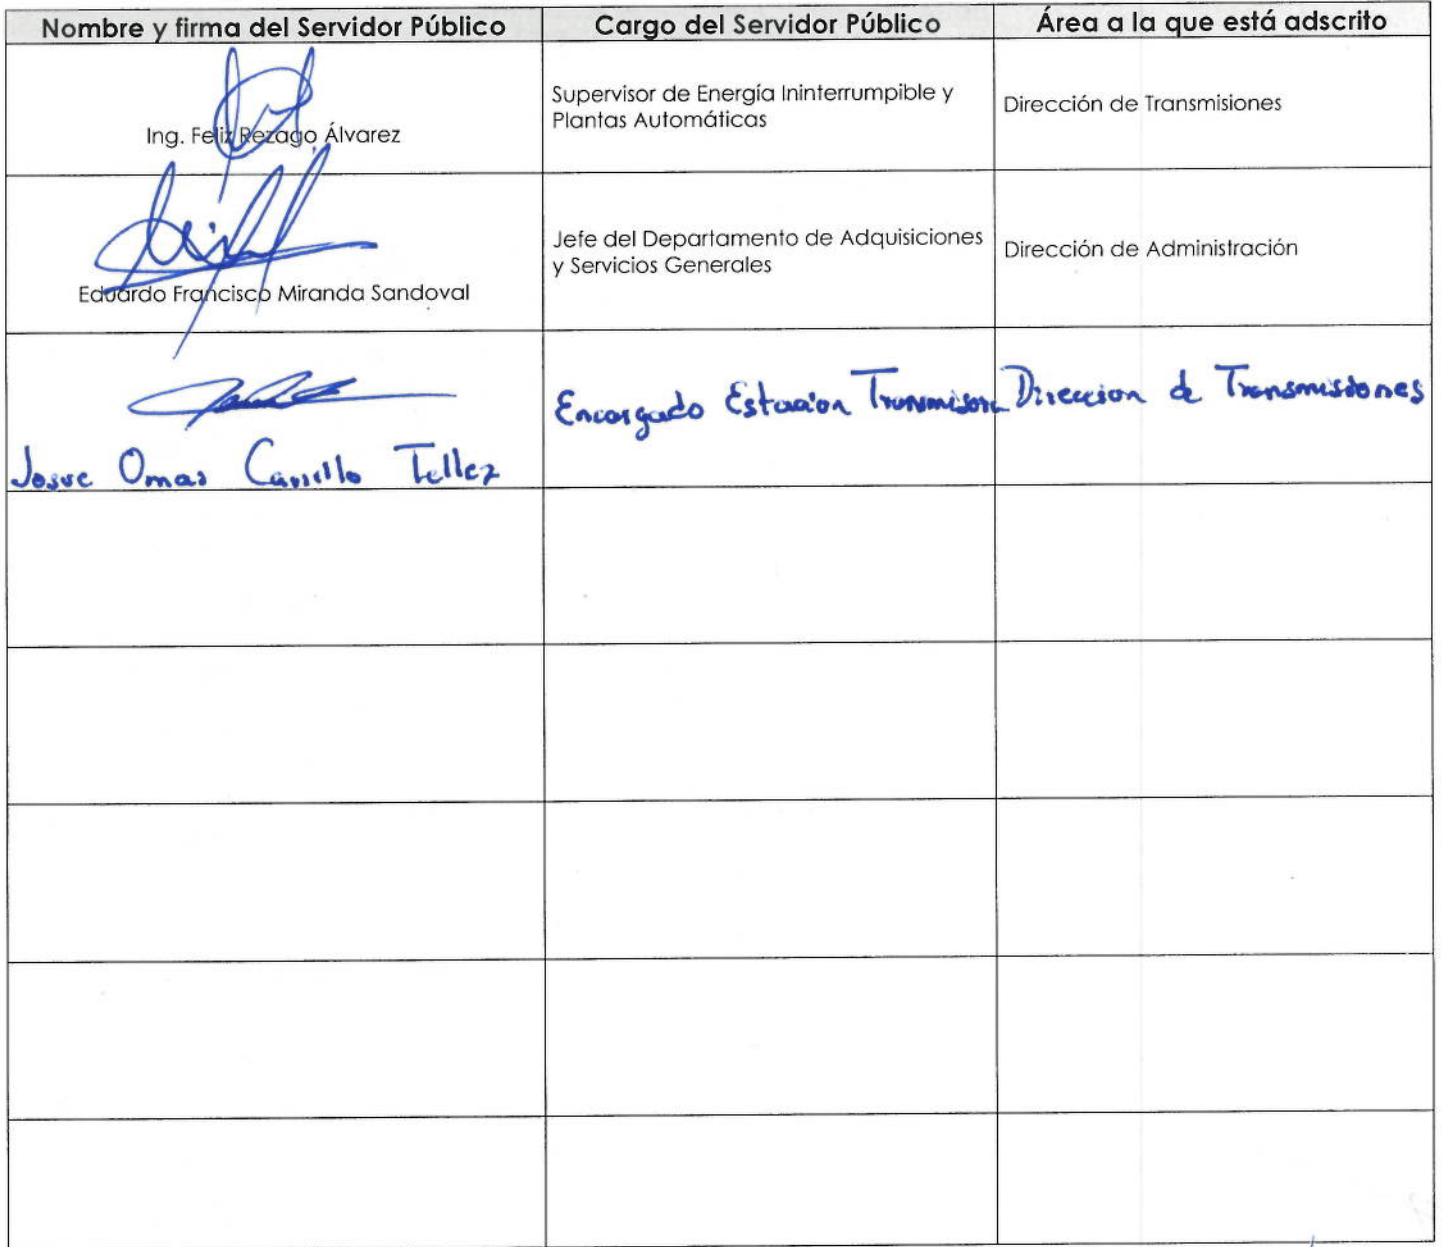 Nombre y firma del Servidor Público Cargo del Servidor Público Área a la que está adscrito
Ing. Feliz Rezago Álvarez
Supervisor de Energía Ininterrumpible y
Plantas Automáticas
Dirección de Transmisiones
Eduardo Francisco Miranda Sandoval
Jefe del Departamento de Adquisiciones
y Servicios Generales
Dirección de Administración
Josue Omar Carrillo Tellez
Encargado Estacion Transmisora
Direccion de Transmisiones